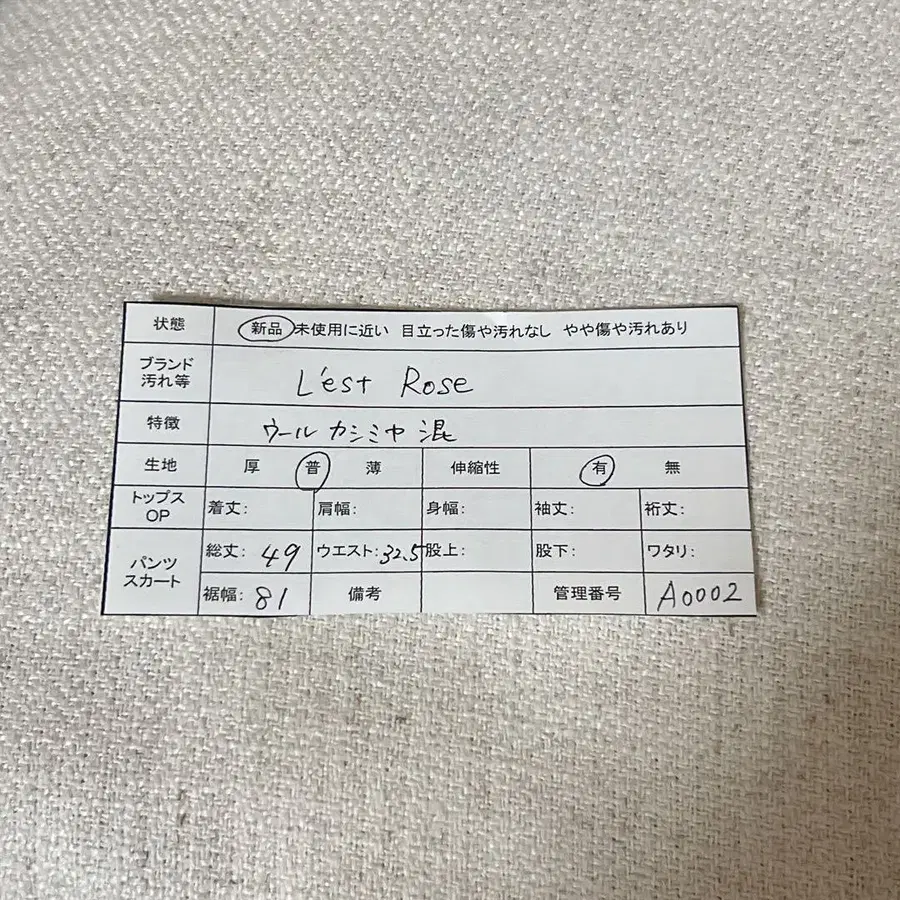 状態 新品 未使用に近い 目立った傷や汚れなし やや傷や汚れあり
ブランド
汚れ等 L'est Rose
特徴 ウール カシミヤ 混
生地 厚 普 薄 伸縮性 有 無
トップス
OP 着丈: 肩幅: 身幅: 袖丈: 裄丈:
パンツ
スカート
総丈: 49 ウエスト: 32.5 股上: 股下: ワタリ:
裾幅: 81 備考 管理番号 A0002